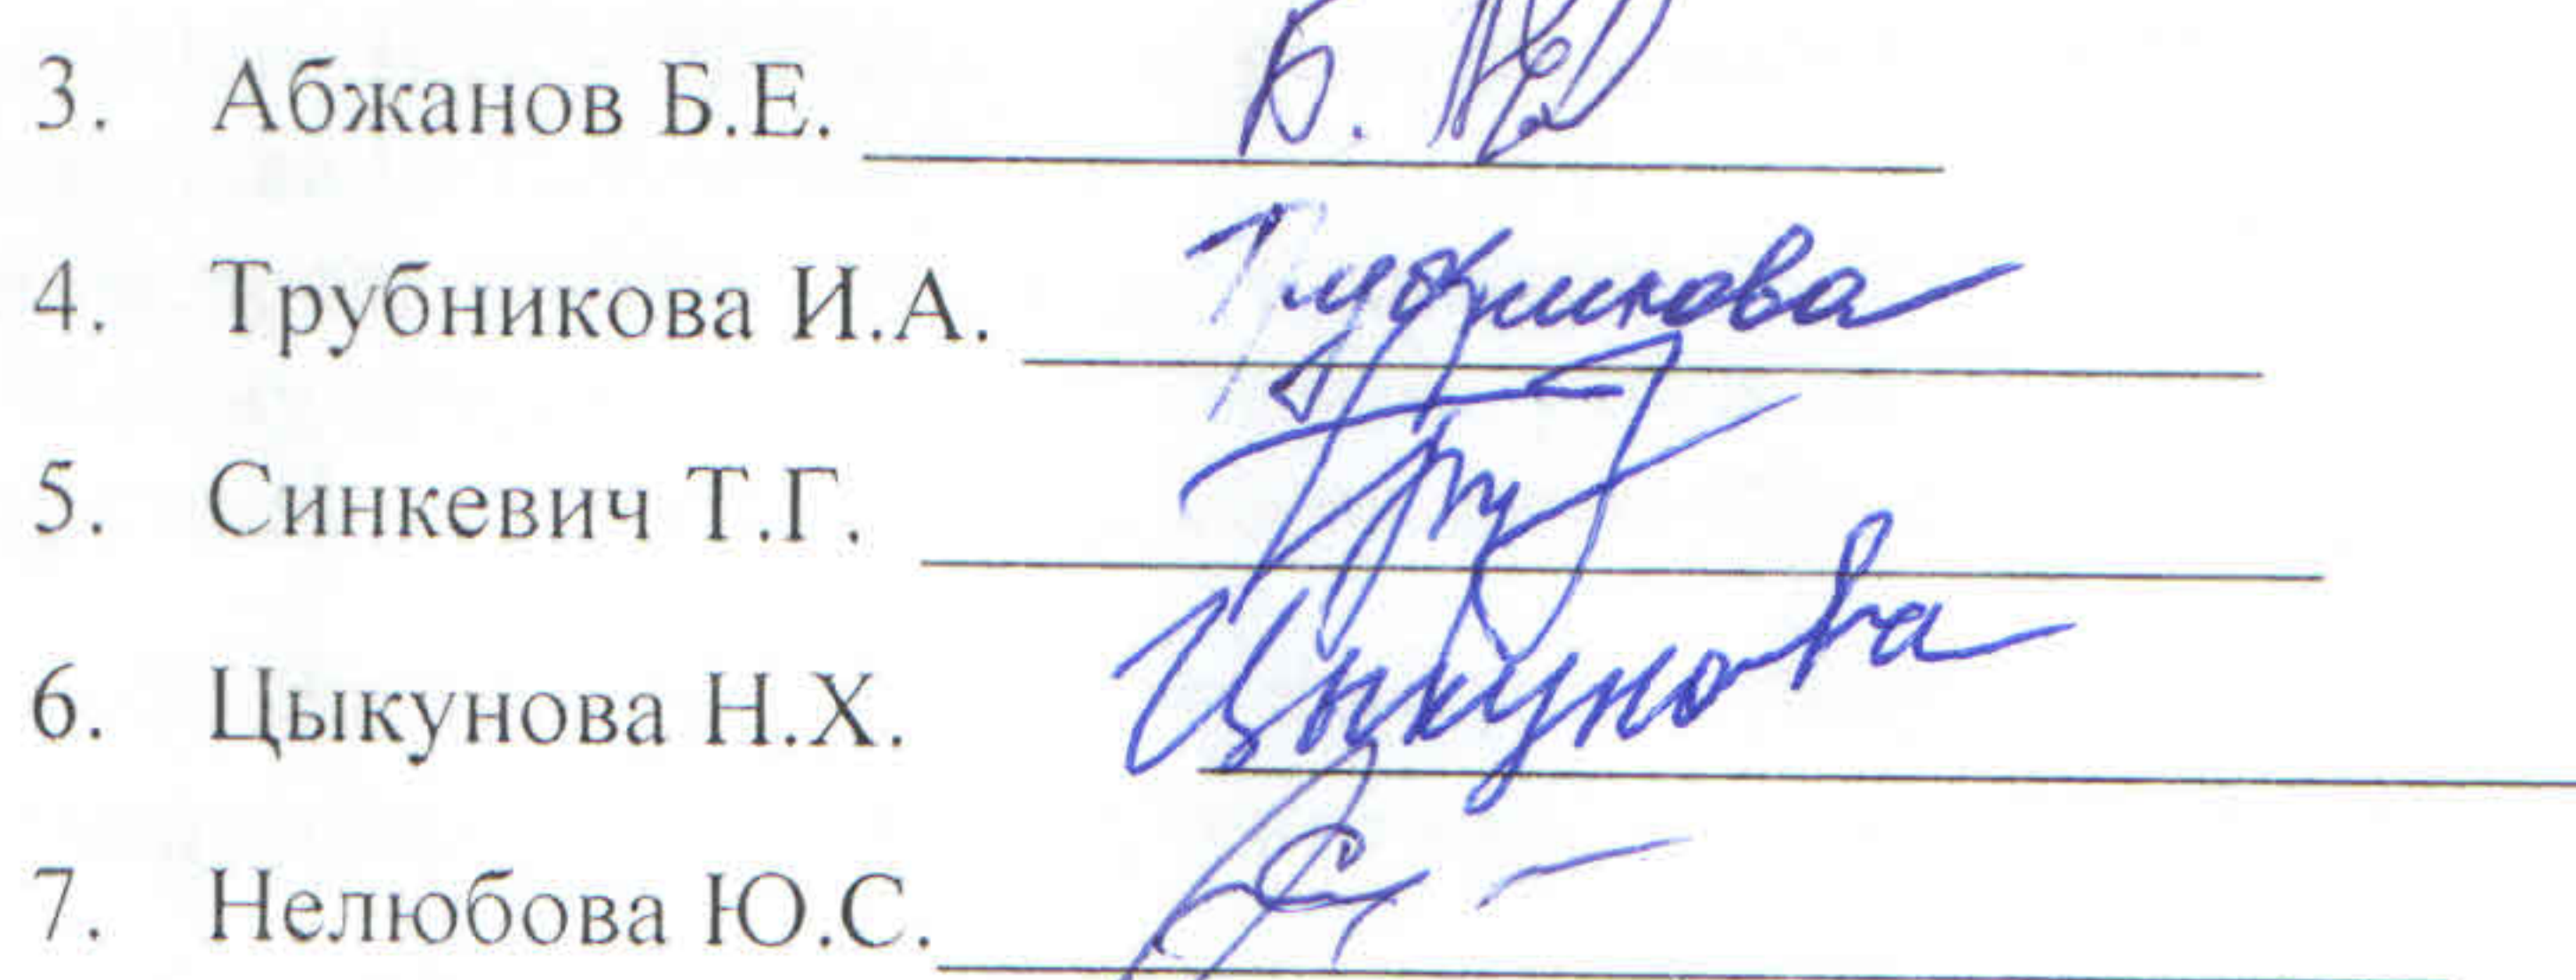 3. Абжанов Б.Е. Б.
4. Трубникова И.А. Трубникова
5. Синкевич Т.Г.
6. Цыкунова Н.Х. Цыкунова
7. Нелюбова Ю.С.